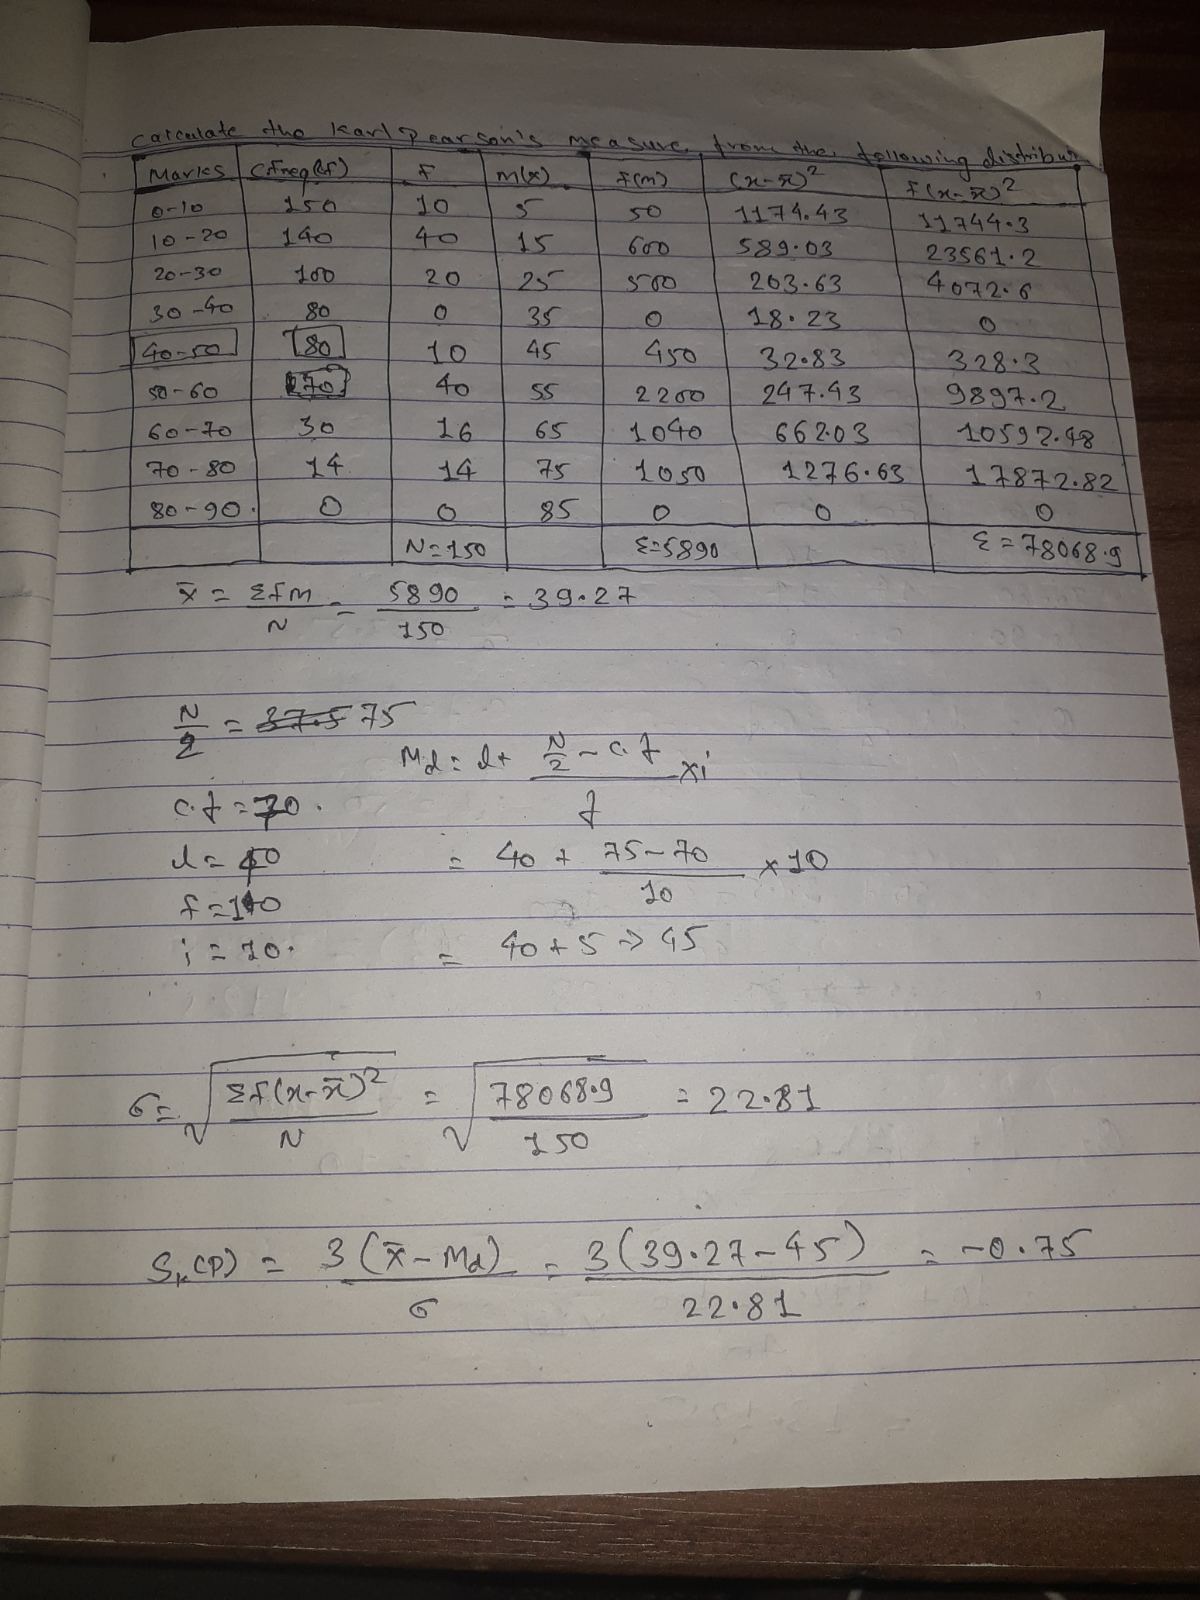 Calculate the Karl Pearson's measure from the following distribut
Marks C.Freq(cf) F M(x) F(m) (x-x̄)² F(x-x̄)²
0-10 150 10 5 50 1174.43 11744.3
10-20 140 40 15 600 589.03 23561.2
20-30 100 20 25 500 203.63 4072.6
30-40 80 0 35 0 18.23 0
40-50 80 10 45 450 32.83 328.3
50-60 70 40 55 2200 247.43 9897.2
60-70 30 16 65 1040 662.03 10592.48
70-80 14 14 75 1050 1276.63 17872.82
80-90 0 0 85 0 0 0
N=150 Σ=5890 Σ=78068.9
x̄ = ΣFM/N = 5890/150 = 39.27
N/2 = 37.5 75
Md = l+ N/2 - c.f / f ×i
c.f = 70
l = 40
= 40 + 75-70/10 ×10
f = 10
i = 10
= 40+5 ⇒ 45
σ = √ΣF(x-x̄)²/N = √78068.9/150 = 22.81
Sk(P) = 3(x̄-Md)/σ = 3(39.27-45)/22.81 = -0.75